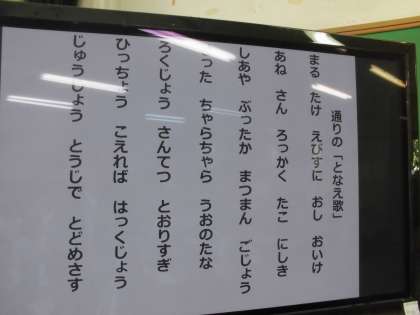 通りの「となえ歌」
まる たけ えびすに おし おいけ
あね さん ろっかく たこ にしき
しあや ぶったか まつまん ごじょう
った ちゃらちゃら うおのたな
ろくじょう さんてつ とおりすぎ
ひっちょう こえれば はっくじょう
じゅうじょう とうじで とどめさす